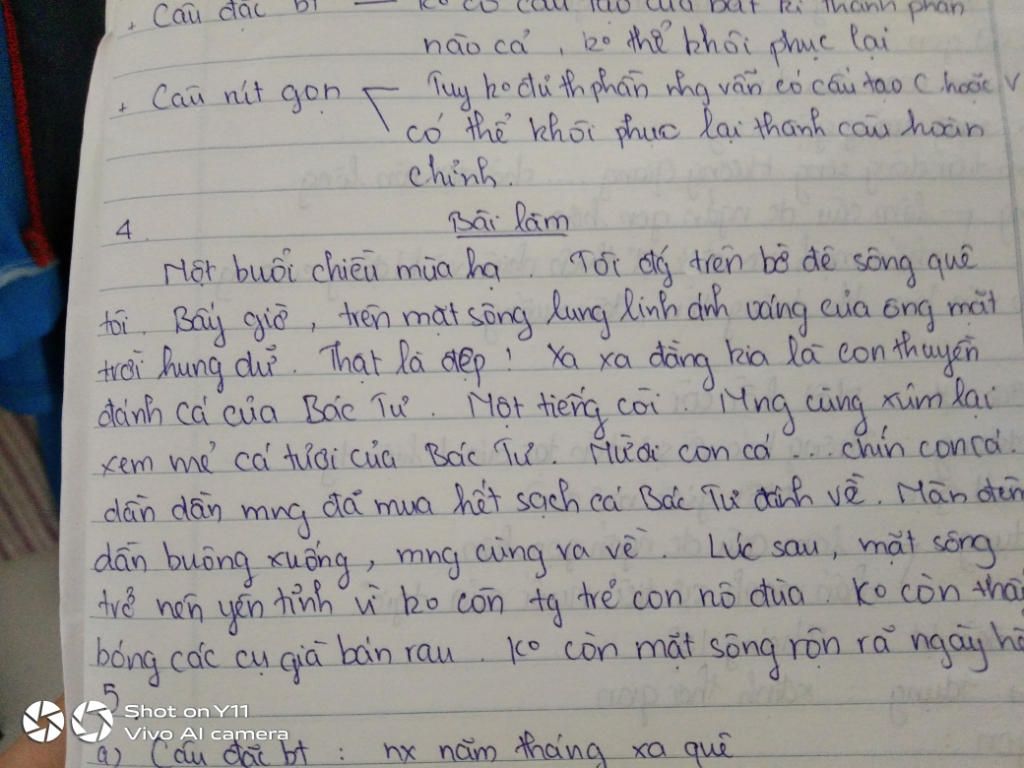 + Câu đặc bt — ko có cấu tạo của bất kì thành phần
nào cả, ko thể khôi phục lại
+ Câu rút gọn Tuy ko đủ th phần nhg vẫn có cấu tạo C hoặc V
có thể khôi phục lại thành câu hoàn
chỉnh.
4. Bài làm
Một buổi chiều mùa hạ. Tôi đg trên bờ đê sông quê
tôi. Bấy giờ, trên mặt sông lung linh ánh vàng của ông mặt
trời hung dữ. Thật là đẹp! Xa xa đằng kia là con thuyền
đánh cá của Bác Tư. Một tiếng còi. Mng cùng xúm lại
xem mẻ cá tươi của Bác Tư. Mười con cá ... chín con cá.
dần dần mng đã mua hết sạch cá Bác Tư đánh về. Màn đêm
dần buông xuống, mng cùng ra về. Lúc sau, mặt sông
trở nên yên tĩnh vì ko còn tg trẻ con nô đùa. Ko còn thấy
bóng các cụ già bán rau. Ko còn mặt sông rộn rã ngày hè
5.
a) Câu đặc bt : nx năm tháng xa quê
Shot on Y11
Vivo AI camera